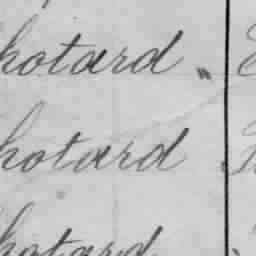 hotard "
hotard
hotard